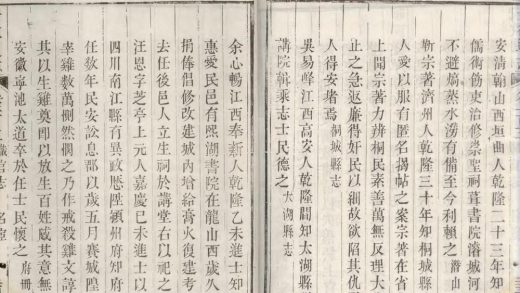 安清翰山西垣曲人乾隆二十三年知
儒術飭吏治修聖祠葺書院濬城河
不避熇蒸水澇有備至今利賴之 潛山
靳宗著濟州人乾隆三十年知桐城縣
人愛以服有匿名揭帖之案宗著在省
上聞宗著力辨桐民素善萬無反理大
止之急返廉得奸民以細故欲陷其仇
人得安堵焉 桐城縣志
吳易峰江西高安人乾隆間知太湖縣
講院輯乘志士民德之 太湖縣志
余心暢江西奉新人乾隆乙未進士知
惠愛民邑有熙湖書院在龍山西歲久
捐俸倡修改建城內增給膏火復建考
去任後邑人立生祠於講堂右以祀之
汪恩字芝亭上元人嘉慶己未進士以
四川南江縣有異政歷陞潁州府知府
任數年民安訟息郡以歲五月賽城隍
宰雞數萬惻然憫之乃作戒殺雞文諄
其以生雞奠即以放生百姓咸其意無
安徽寧池太道卒於任士民懷之 府冊
職官志 名宦